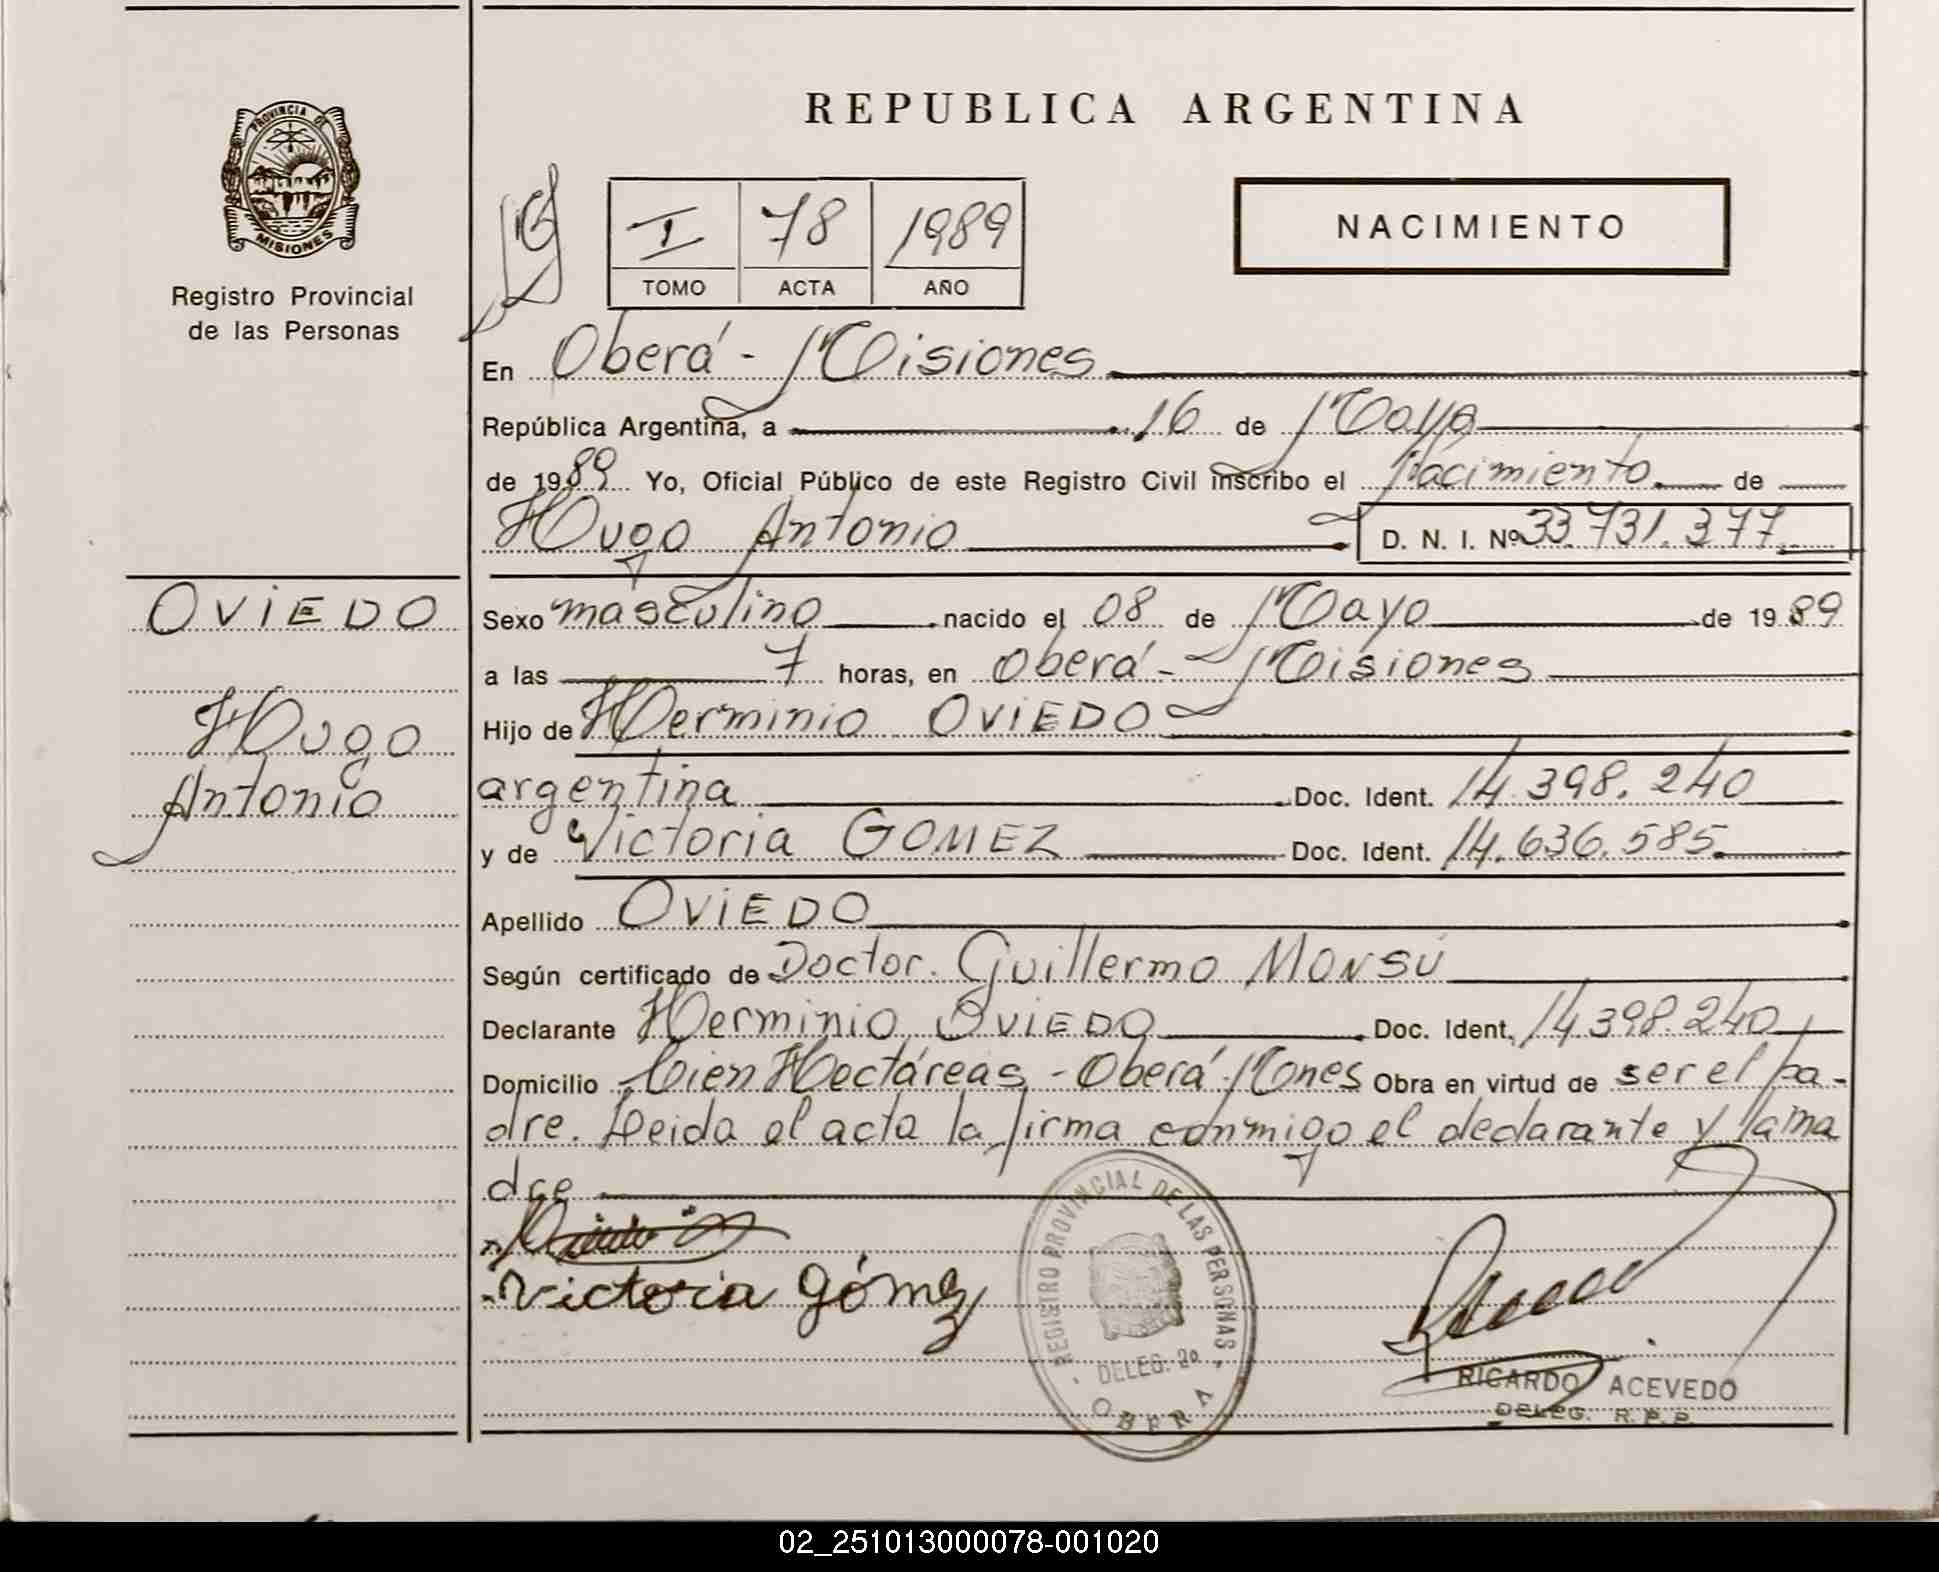 REPUBLICA ARGENTINA
PROVINCIA DE
MISIONES
Registro Provincial
de las Personas
I 78 1989
TOMO ACTA AÑO
NACIMIENTO
En Oberá - Misiones
República Argentina, a 16 de Mayo
de 1989 Yo, Oficial Público de este Registro Civil inscribo el Nacimiento de
Hugo Antonio D. N. I. Nº 33.731.377
OVIEDO
Hugo
Antonio
Sexo masculino nacido el 08 de Mayo de 1989
a las 7 horas, en Oberá - Misiones
Hijo de Herminio OVIEDO
argentina Doc. Ident. 14.398.240
y de Victoria GOMEZ Doc. Ident. 14.636.585
Apellido OVIEDO
Según certificado de Doctor. Guillermo MONSÚ
Declarante Herminio OVIEDO Doc. Ident. 14.398.240
Domicilio Cien Hectáreas - Oberá - Mones Obra en virtud de ser el pa-
dre. Leida el acta la firma conmigo el declarante y la ma
dre
Victoria Gómez
REGISTRO PROVINCIAL DE LAS PERSONAS
DELEG. 2º
OBERA
RICARDO ACEVEDO
DELEG. R. P. P.
02_251013000078-001020